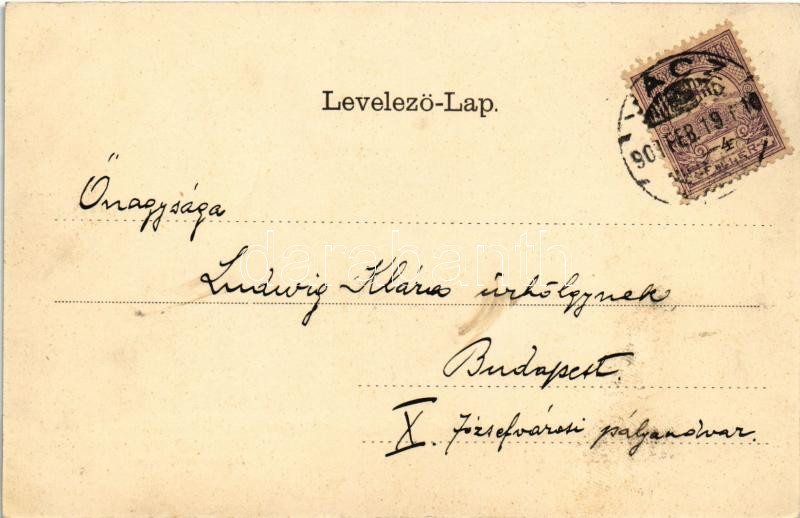 Levelező-Lap.
VÁCZ
901 FEB. 19
4
FILLÉR
Őnagysága
Ludwig Klára úrhölgynek
Budapest.
X. Józsefvárosi pályaudvar.
darabanth